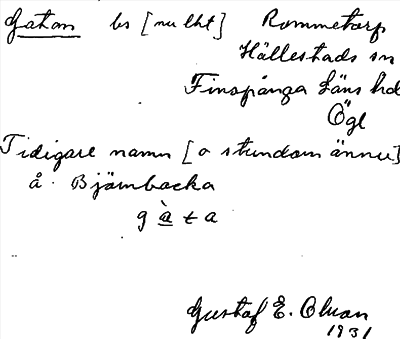 Gatan bs [nu lht] Rommetorp
Hällestads sn
Finspånga läns hd
Ögl
Tidigare namn [o stundom ännu]
å Björnbacka
g à t a
Gustaf E. Olson
1931